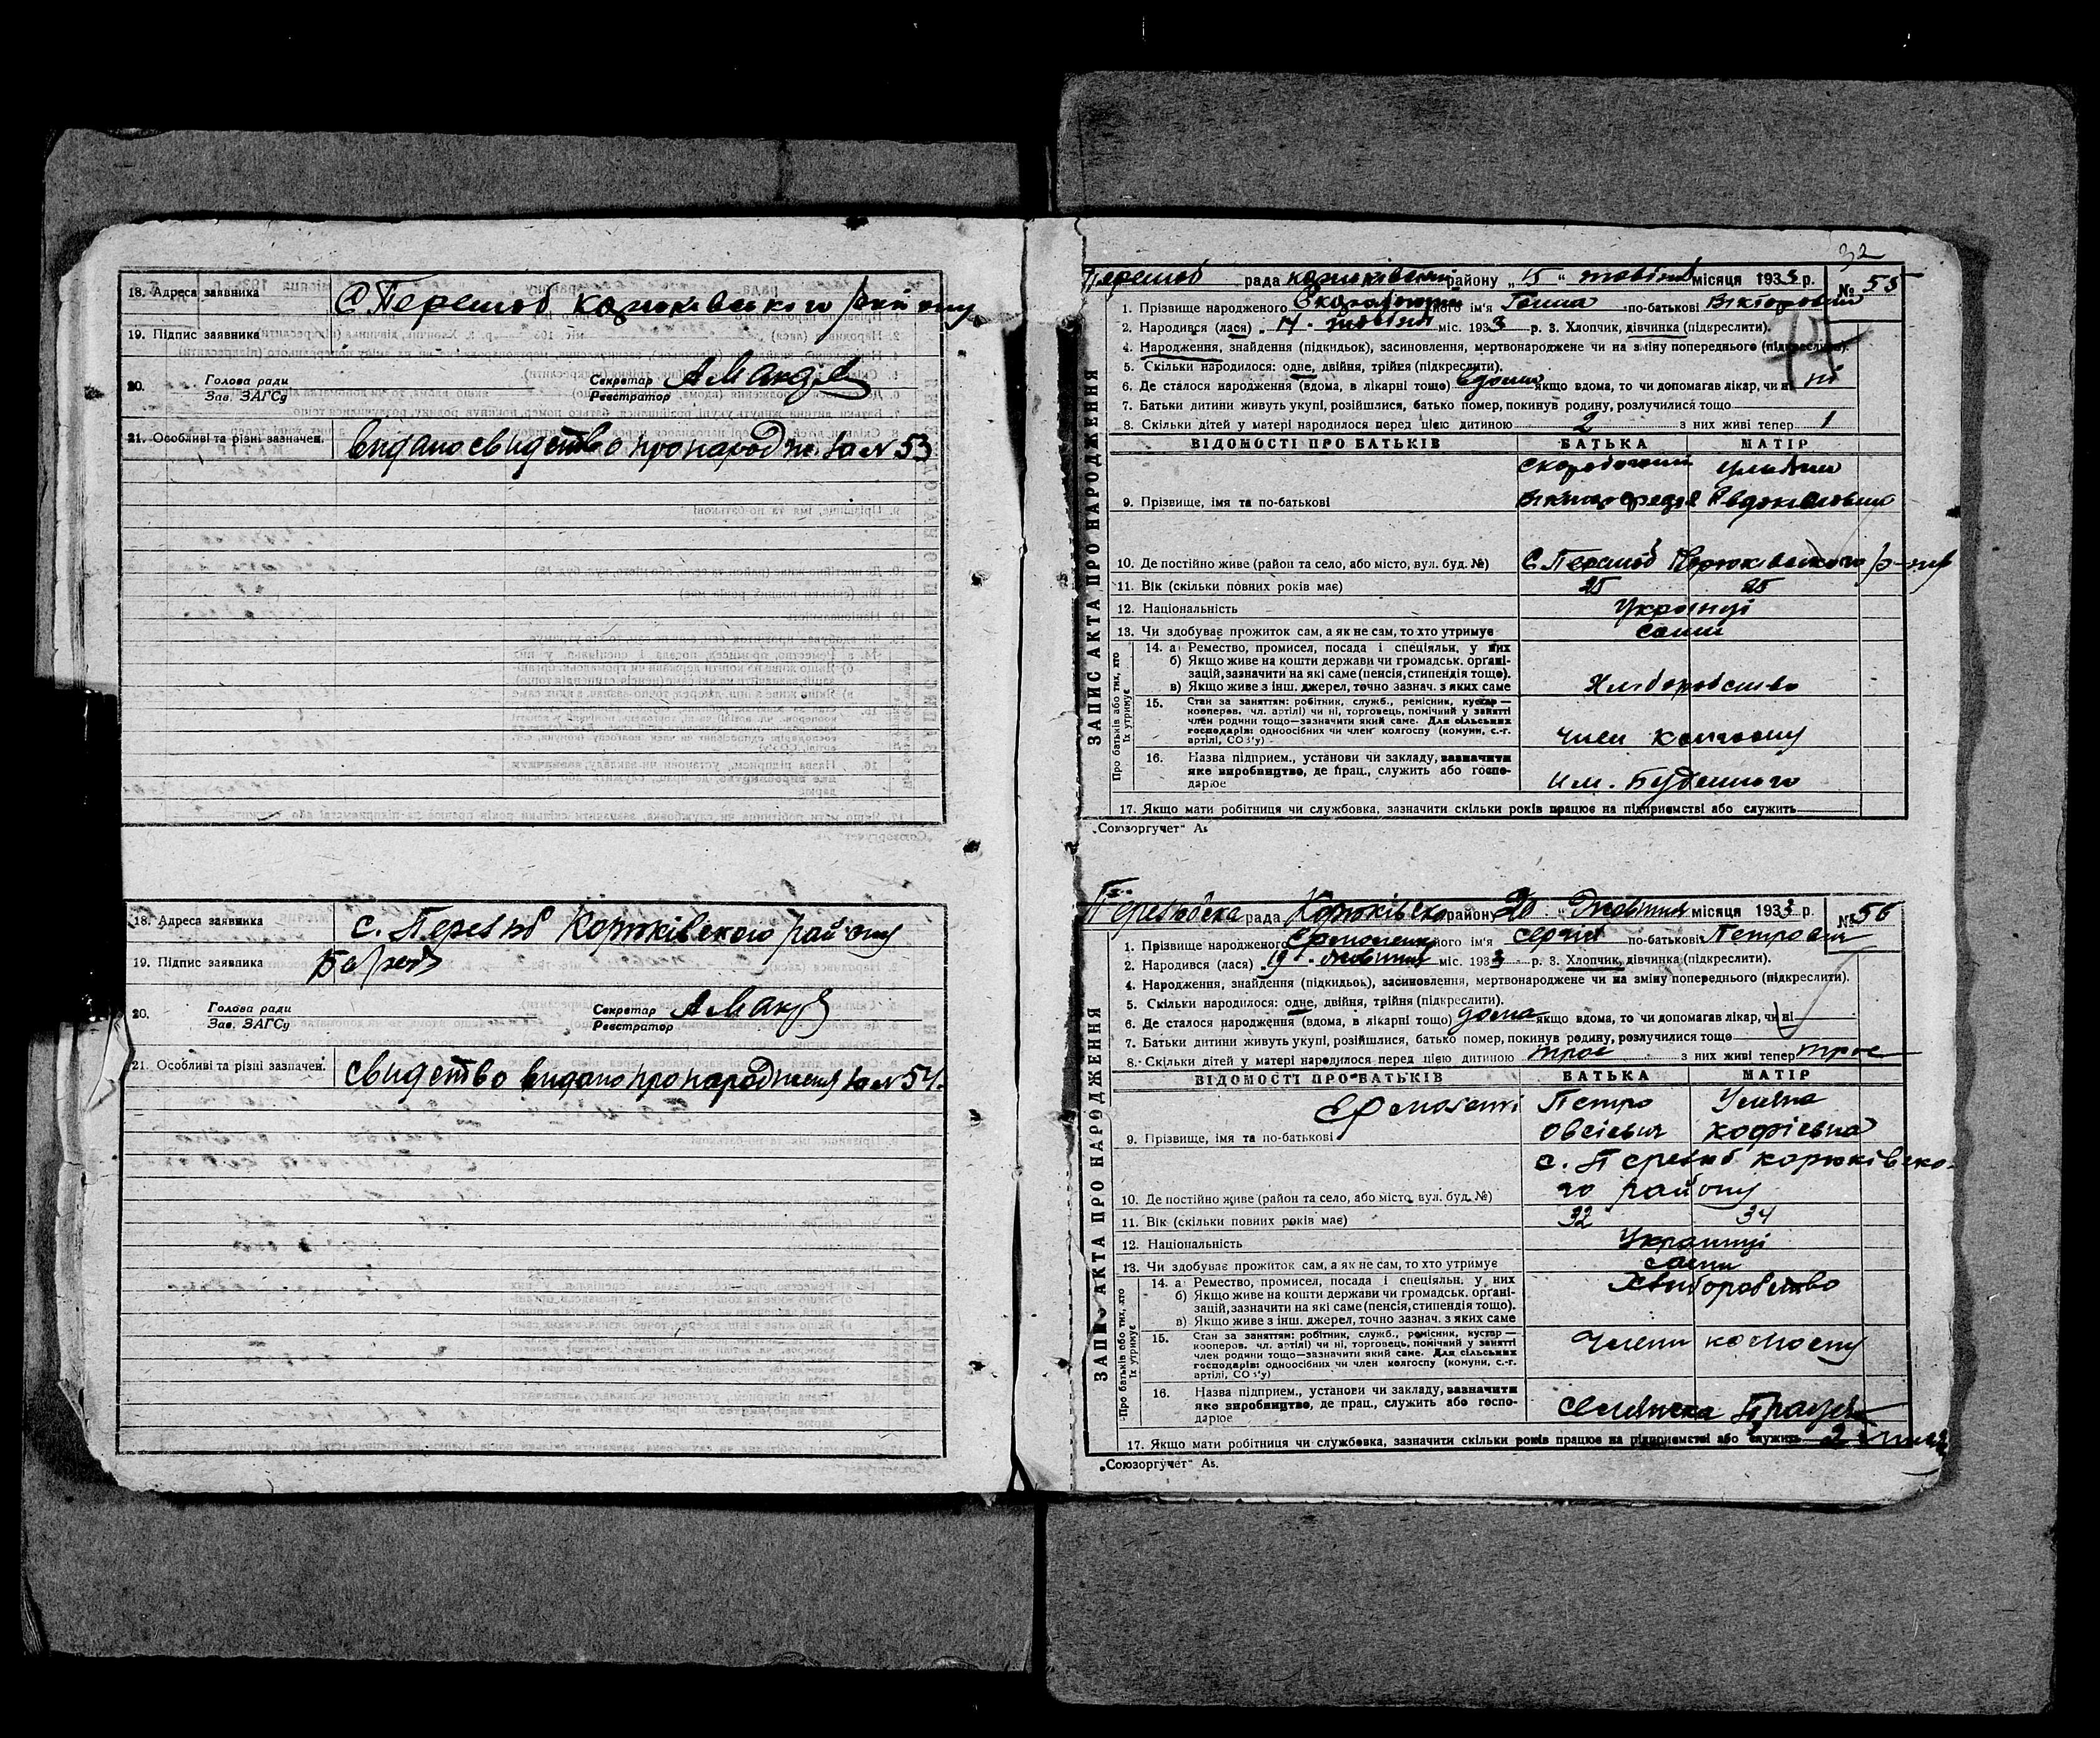 18. Адреса заявника С. Перелюб Корюківського району
19. Підпис заявника
20. Голова ради
Зав. ЗАГСу
Секретар
Реєстратор
21. Особливі та різні зазначен. видано свидетво про народж. за № 53
18. Адреса заявника с. Перелюб Корюківского району
19. Підпис заявника
20. Голова ради
Зав. ЗАГСу
Секретар
Реєстратор
21. Особливі та різні зазначен. свидетво видано про народження за № 54.
32
ЗАПИС АКТА ПРО НАРОДЖЕННЯ
Перелюб рада району „ 15 “ жовтня місяця 1933 р. № 55
1. Прізвище народженого його ім'я Ганна по-батькові Вікторовна
2. Народився (лася) „ 14 - жовтня міс. 1933 р. 3. Хлопчик, дівчинка (підкреслити).
4. Народження, знайдення (підкидьок), засиновлення, мертвонароджене чи на зміну попереднього (підкреслити).
5. Скільки народилося: одне, двійня, трійня (підкреслити).
6. Де сталося народження (вдома, в лікарні тощо) вдома якщо вдома, то чи допомагав лікар, чи ні ні
7. Батьки дитини живуть укупі, розійшлися, батько помер, покинув родину, розлучилися тощо
8. Скільки дітей у матері народилося перед цією дитиною 2 з них живі тепер 1
ВІДОМОСТІ ПРО БАТЬКІВ БАТЬКА МАТІР
9. Прізвище, імя та по-батькові
10. Де постійно живе (район та село, або місто, вул. буд. №) С. Перелюб Корюківського р-ну
11. Вік (скільки повних років має) 25 25
12. Національність Українці
13. Чи здобуває прожиток сам, а як не сам, то хто утримує сами
Про батьків або тих, хто їх утримує
14. а) Ремество, промисел, посада і спеціяльн. у них
б) Якщо живе на кошти держави чи громадськ. органі-
зацій, зазначити на які саме (пенсія, стипендія тощо).
в) Якщо живе з інш. джерел, точно зазнач. з яких саме Хліборобство
15. Стан за заняттям: робітник, служб., ремісник, кустар —
кооперов. чл. артілі) чи ні, торговець, помічний у занятті
член родини тощо—зазначити який саме. Для сільських
господарів: одноосібних чи член колгоспу (комуни, с.-г.
артілі, СОЗ'у) члени колгоспу
16. Назва підприєм., установи чи закладу, зазначити
яке виробництво, де прац., служить або госпо-
дарює им. Буденного
17. Якщо мати робітниця чи службовка, зазначити скільки років працює на підприємстві або служить
„Союзоргучет“ Аs
ЗАПИС АКТА ПРО НАРОДЖЕННЯ
рада Корюківско району 20 “ Жовтня місяця 1933 р. № 56
1. Прізвище народженого Єрмоленко його ім'я Сергій по-батькові Петрович
2. Народився (лася) „ 19 - жовтня міс. 1933 р. 3. Хлопчик, дівчинка (підкреслити).
4. Народження, знайдення (підкидьок), засиновлення, мертвонароджене чи на зміну попереднього (підкреслити).
5. Скільки народилося: одне, двійня, трійня (підкреслити).
6. Де сталося народження (вдома, в лікарні тощо) дома якщо вдома, то чи допомагав лікар, чи ні
7. Батьки дитини живуть укупі, розійшлися, батько помер, покинув родину, розлучилися тощо
8. Скільки дітей у матері народилося перед цією дитиною трое з них живі тепер трое
ВІДОМОСТІ ПРО БАТЬКІВ БАТЬКА МАТІР
Петро Уляна
9. Прізвище, імя та по-батькові Овсієвич
с. Перелюб Корюківско-
10. Де постійно живе (район та село, або місто, вул. буд. №) го району
11. Вік (скільки повних років має) 32 34
12. Національність Українці
13. Чи здобуває прожиток сам, а як не сам, то хто утримує сами
Про батьків або тих, хто їх утримує
14. а) Ремество, промисел, посада і спеціяльн. у них Хліборобство
б) Якщо живе на кошти держави чи громадськ. органі-
зацій, зазначити на які саме (пенсія, стипендія тощо).
в) Якщо живе з інш. джерел, точно зазнач. з яких саме
15. Стан за заняттям: робітник, служб., ремісник, кустар —
кооперов. чл. артілі) чи ні, торговець, помічний у занятті
член родини тощо—зазначити який саме. Для сільських
господарів: одноосібних чи член колгоспу (комуни, с.-г.
артілі, СОЗ'у) Члени колгоспу
16. Назва підприєм., установи чи закладу, зазначити
яке виробництво, де прац., служить або госпо-
дарює Селянска Праця
17. Якщо мати робітниця чи службовка, зазначити скільки років працює на підприємстві або служить
„Союзоргучет“ Аs.